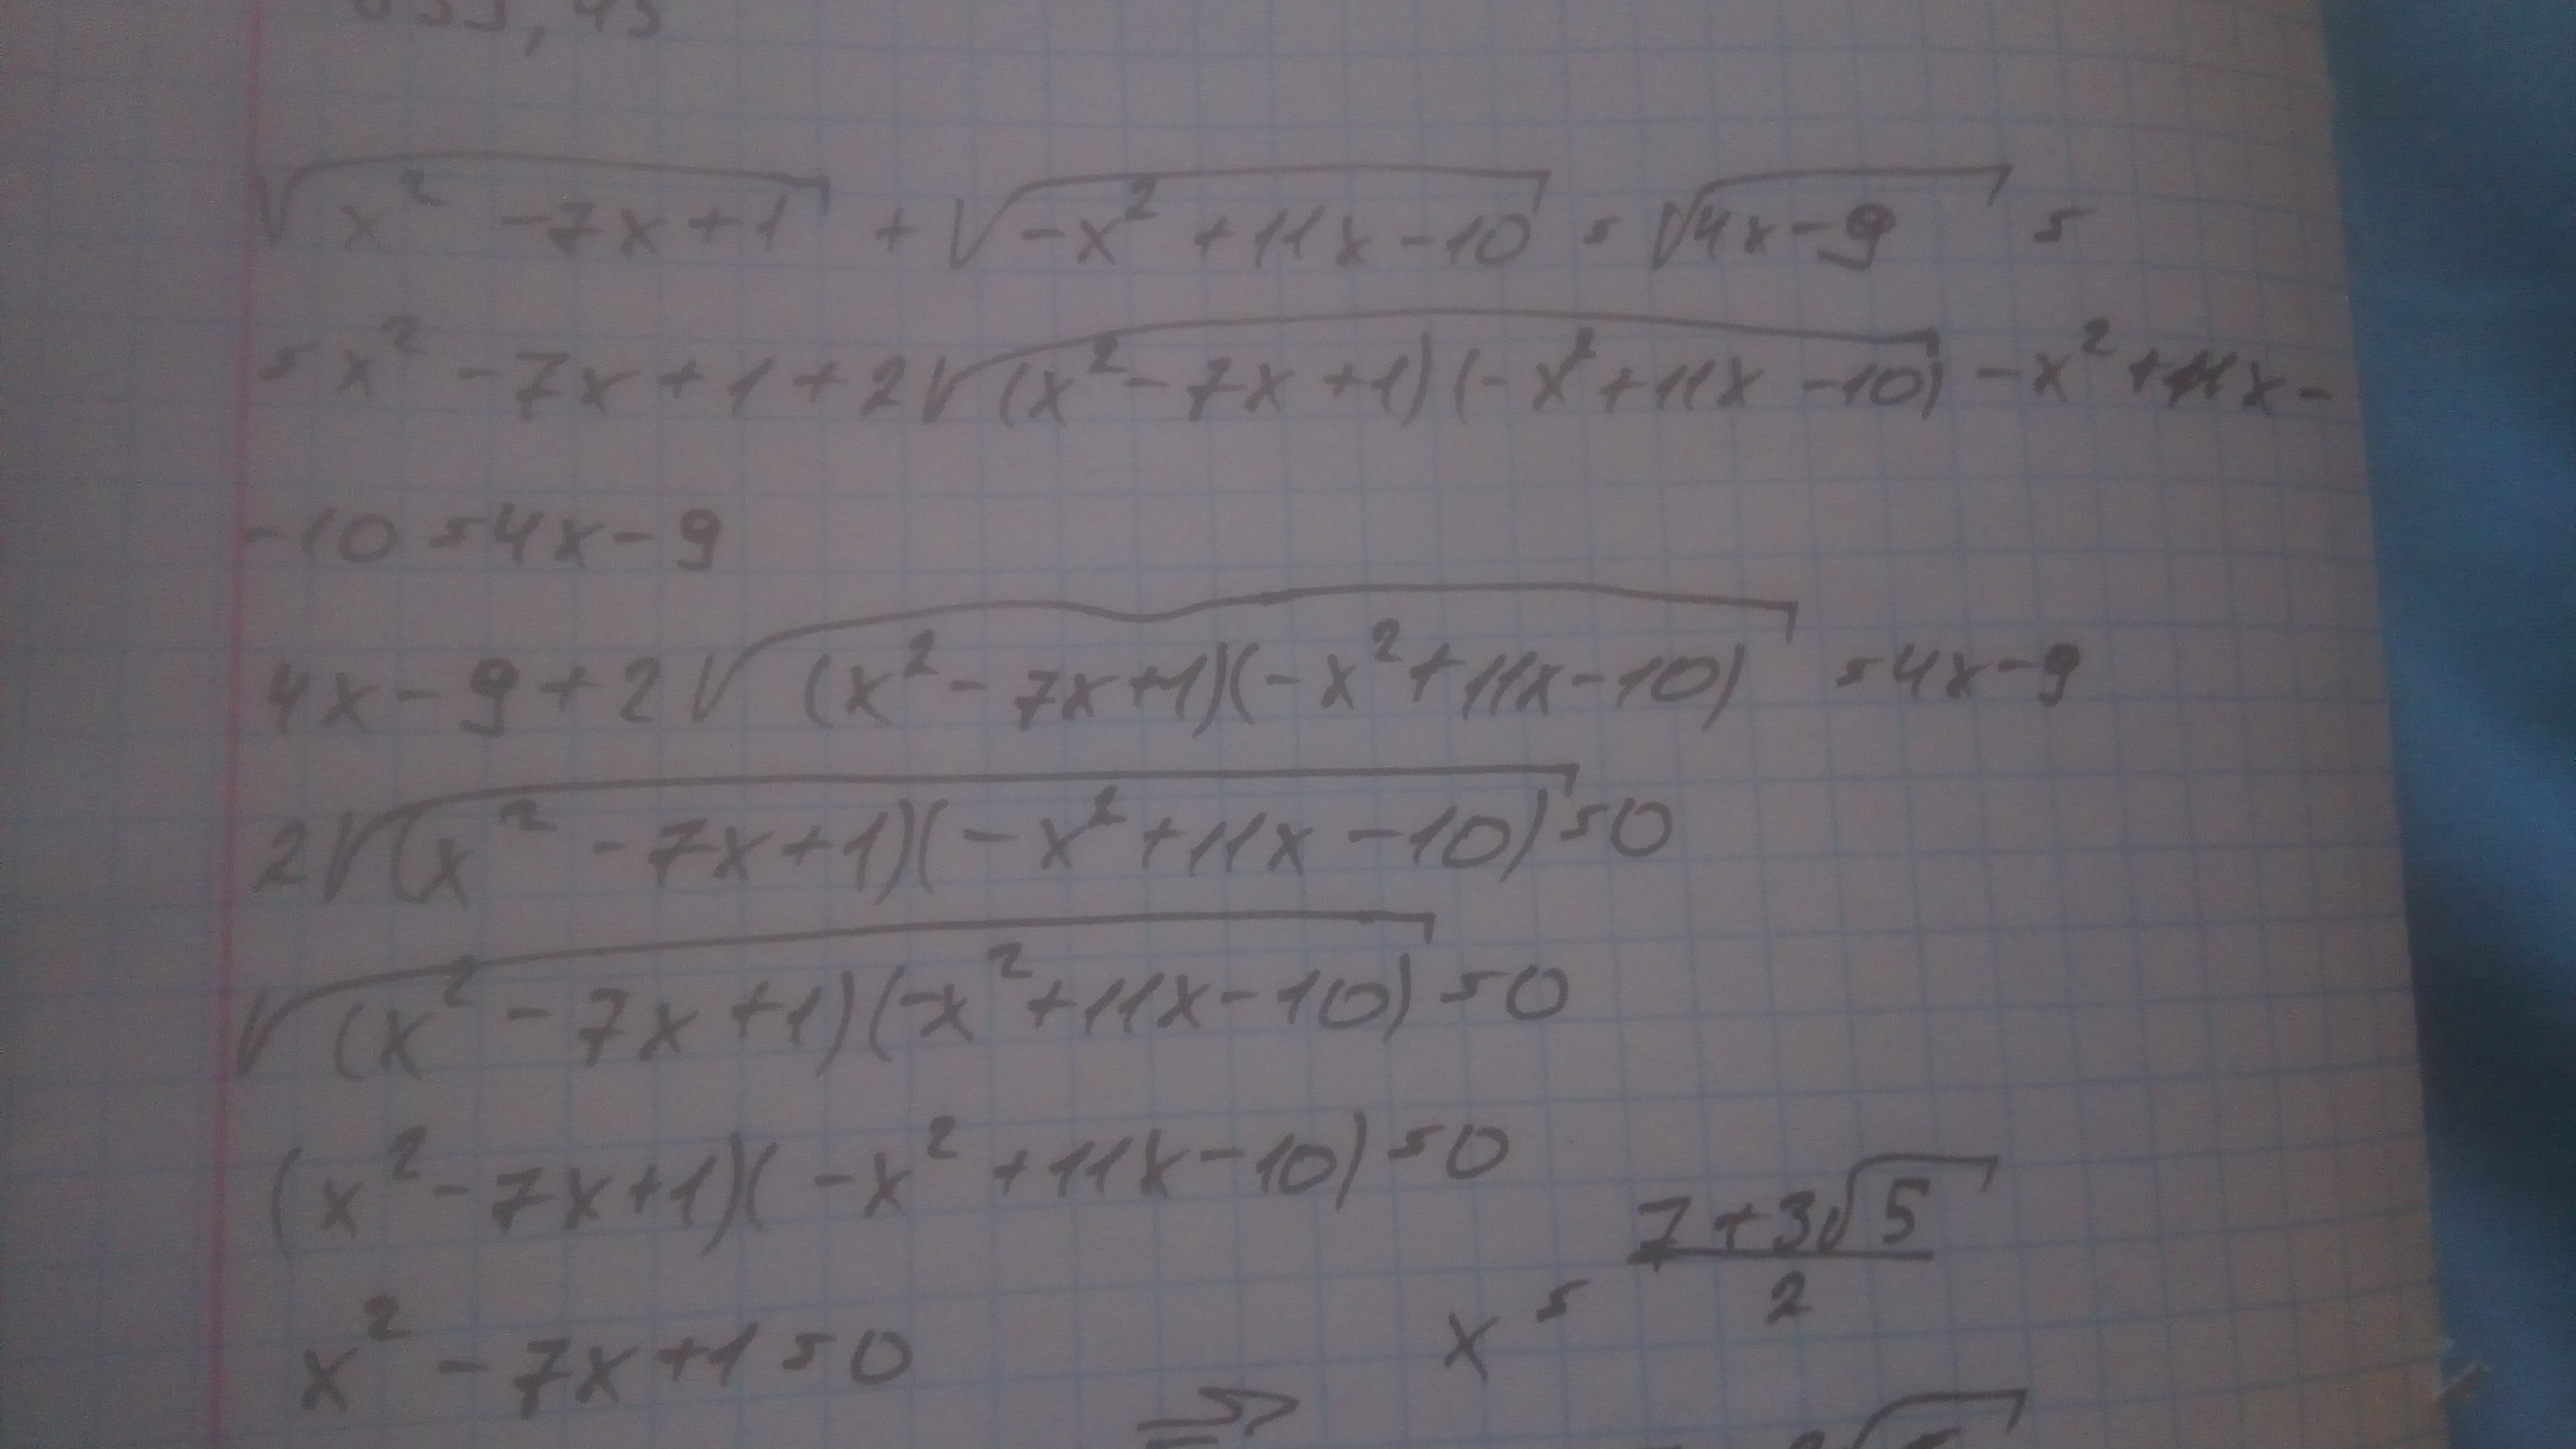 √(x² - 7x + 1) + √(-x² + 11x - 10) = √(4x - 9) =
= x² - 7x + 1 + 2√((x² - 7x + 1)(-x² + 11x - 10)) - x² + 11x -
- 10 = 4x - 9
4x - 9 + 2√((x² - 7x + 1)(-x² + 11x - 10)) = 4x - 9
2√((x² - 7x + 1)(-x² + 11x - 10)) = 0
√((x² - 7x + 1)(-x² + 11x - 10)) = 0
(x² - 7x + 1)(-x² + 11x - 10) = 0
x² - 7x + 1 = 0 ⇒ x = (7 + 3√5)/2